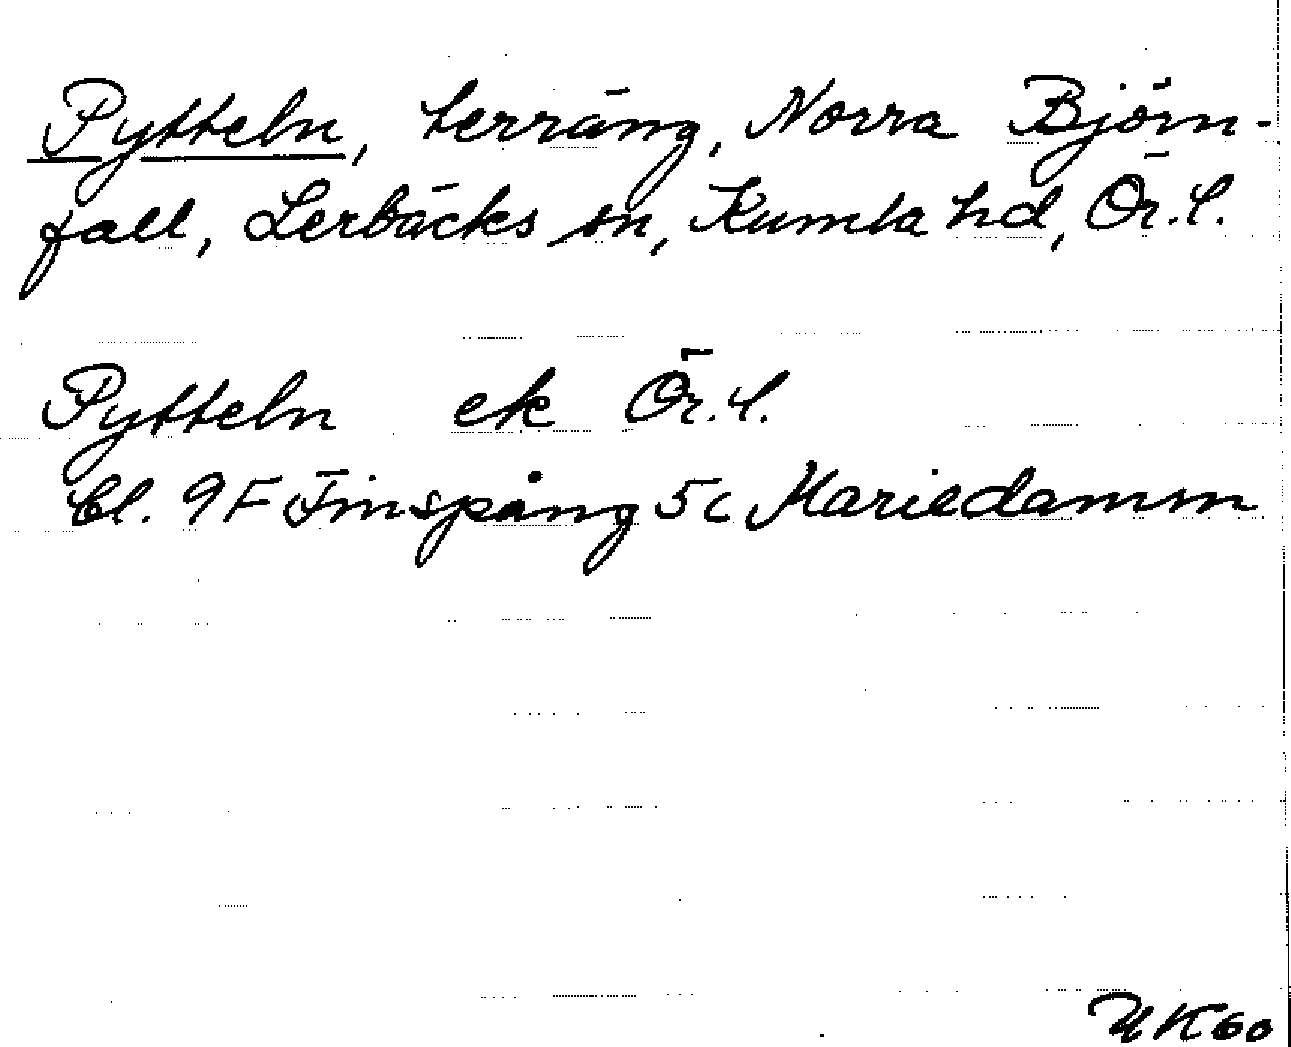 Pytteln, terräng, Norra Björn-
fall, Lerbäcks sn, Kumla hd, Ör. l.
Pytteln ek Ör. l.
bl. 9F Finspång 5c Mariedamm
UK60